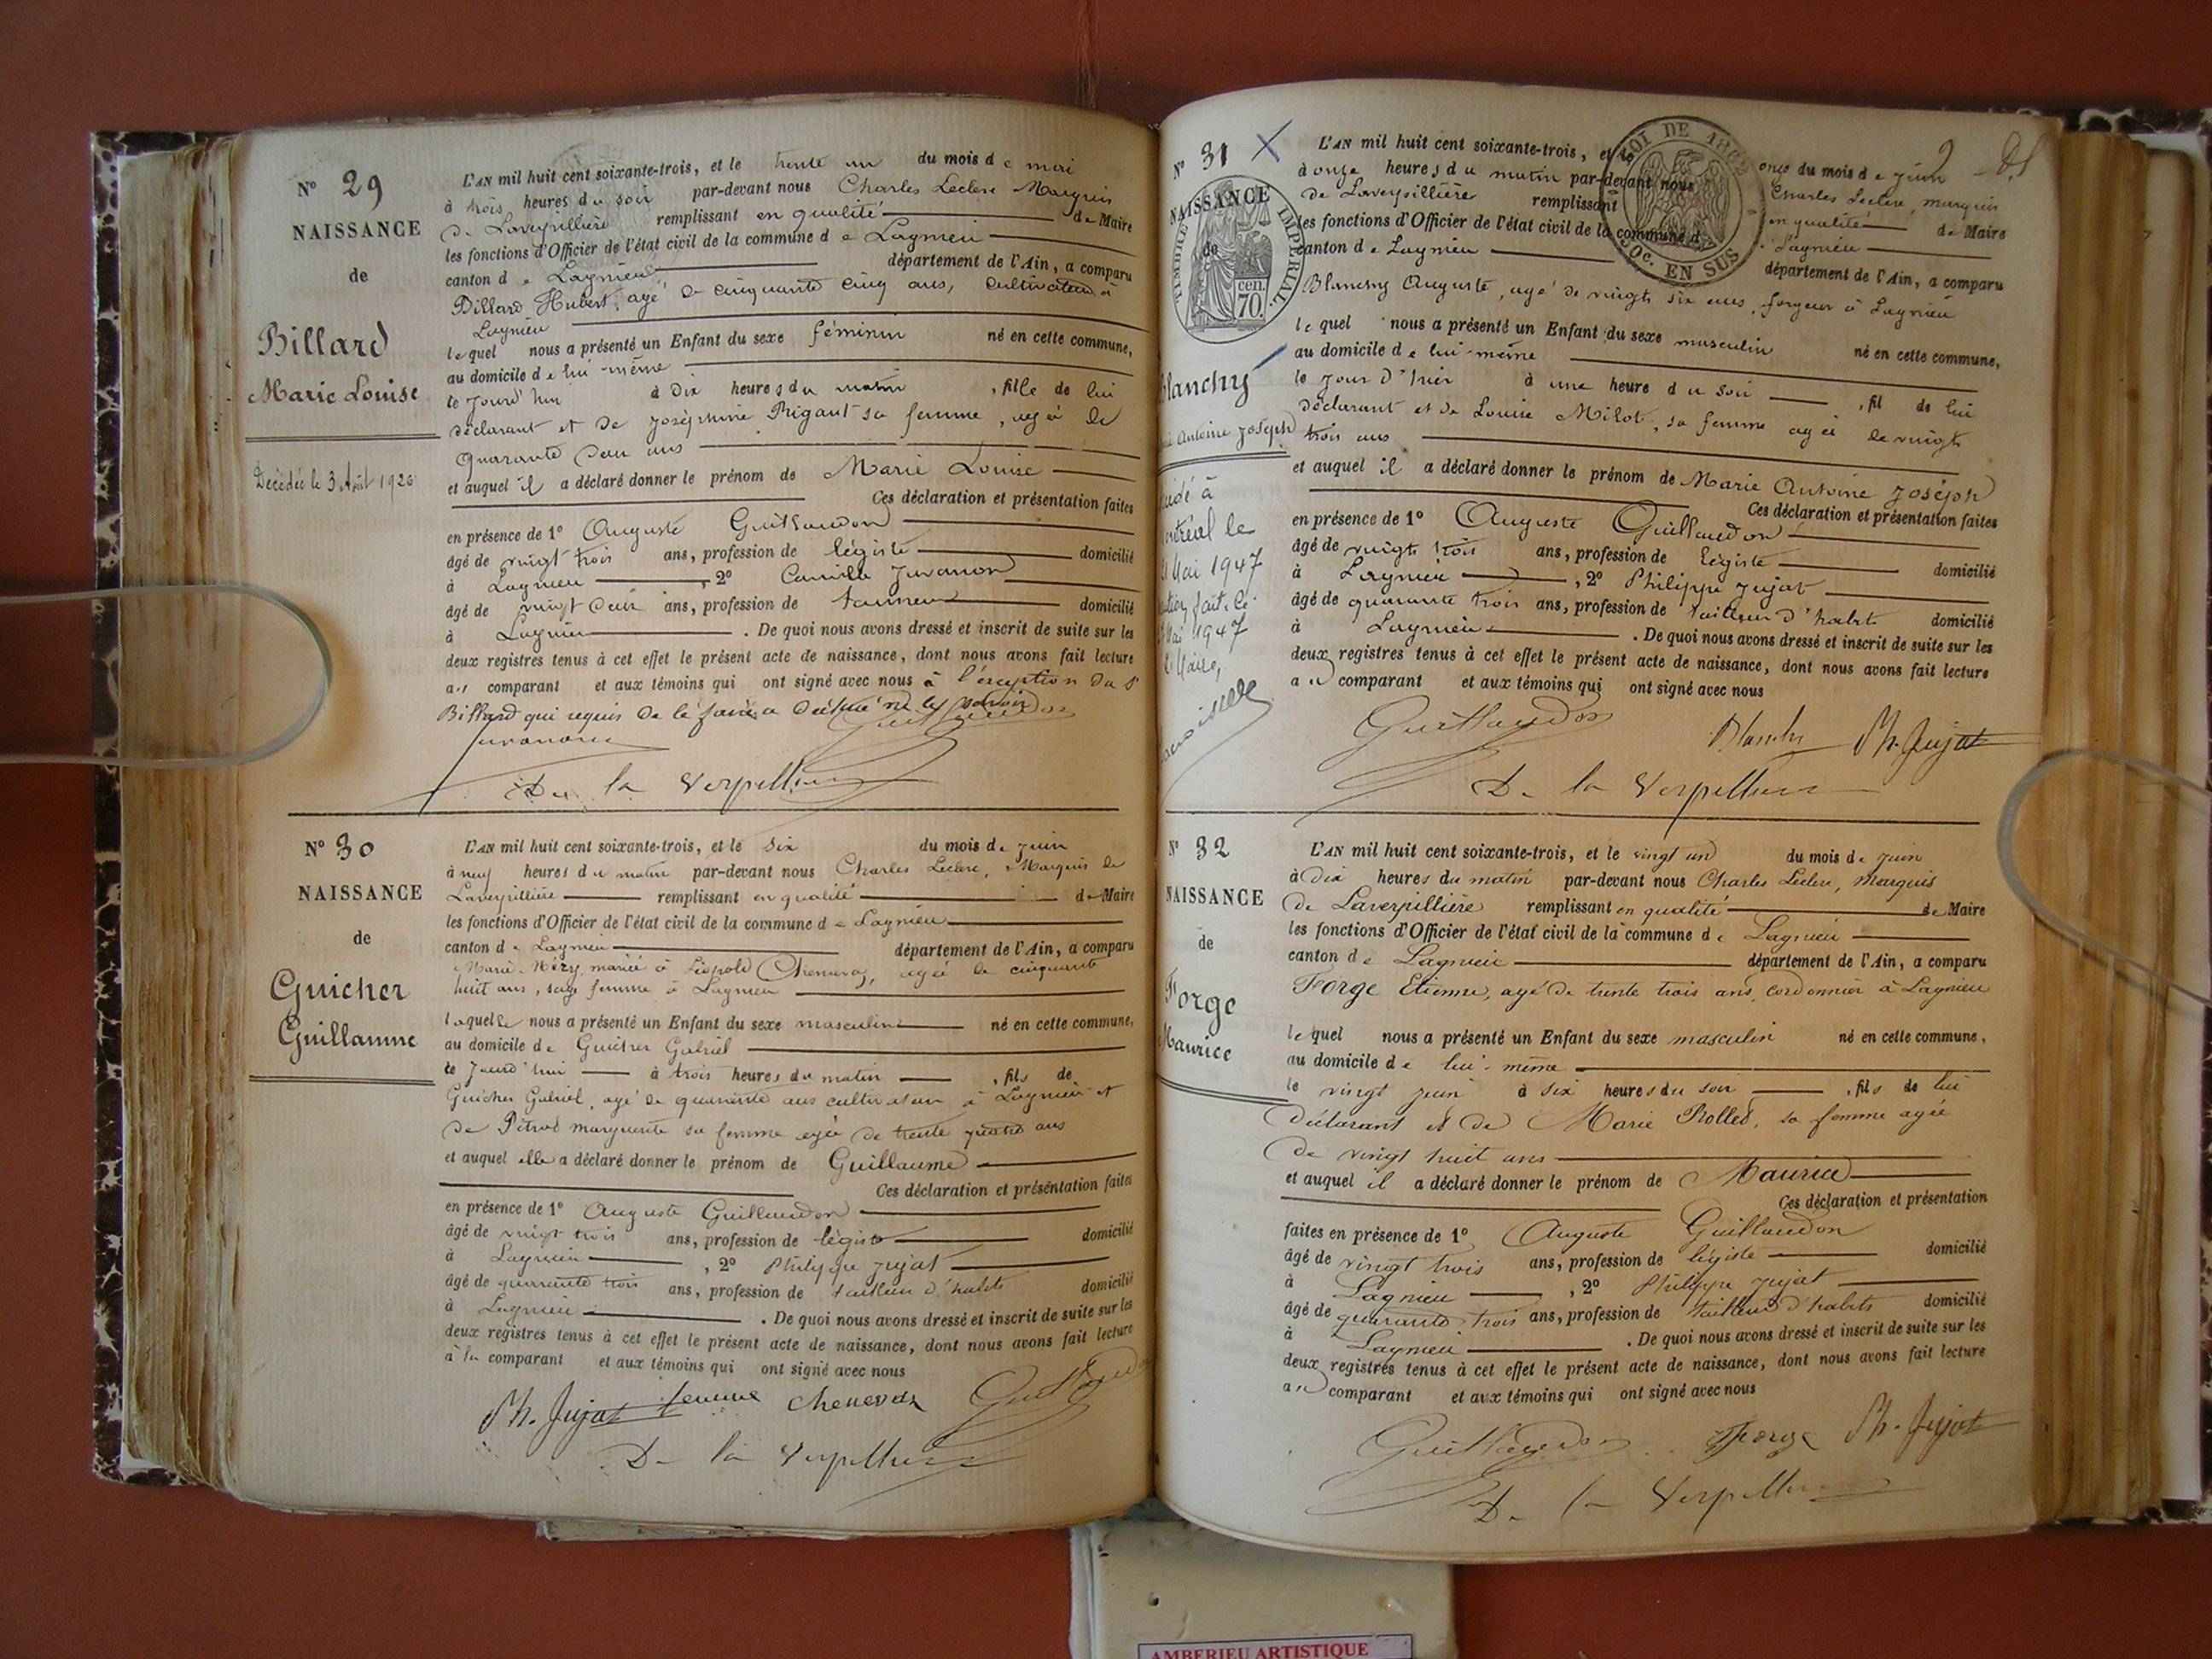 N° 29
NAISSANCE
de
Billard
Marie Louise
Décédée le 3 Août 1926
L'AN mil huit cent soixante-trois, et le trente un du mois de mai
à trois heures du soir par-devant nous Charles Leclerc Marquis
de Laverpillière remplissant en qualité de Maire
les fonctions d'Officier de l'état civil de la commune de Lagnieu
canton de Lagnieu département de l'Ain, a comparu
Billard Hubert, agé de cinquante cinq ans, cultivateur à
Lagnieu
lequel nous a présenté un Enfant du sexe féminin né en cette commune,
au domicile de lui-même
le jourd'hui à dix heures du matin, fille de lui
déclarant et de Joséphine Rigaut sa femme, agée de
quarante deux ans
et auquel il a déclaré donner le prénom de Marie Louise
Ces déclaration et présentation faites
en présence de 1° Auguste Guillaudon
âgé de vingt trois ans, profession de légiste domicilié
à Lagnieu, 2° Camille Juvanon
âgé de vingt deux ans, profession de tanneur domicilié
à Lagnieu. De quoi nous avons dressé et inscrit de suite sur les
deux registres tenus à cet effet le présent acte de naissance, dont nous avons fait lecture
au comparant et aux témoins qui ont signé avec nous à l'exception du S
Billard qui requis de le faire a déclaré ne le savoir
Juvanon Guillaudon
De la Verpillière
N° 30
NAISSANCE
de
Guicher
Guillaume
L'AN mil huit cent soixante-trois, et le six du mois de juin
à neuf heures du matin par-devant nous Charles Leclerc, Marquis de
Laverpillière remplissant en qualité de Maire
les fonctions d'Officier de l'état civil de la commune de Lagnieu
canton de Lagnieu département de l'Ain, a comparu
Marie Méry mariée à Léopold Chenavaz, agée de cinquante
huit ans, sage femme à Lagnieu
laquelle nous a présenté un Enfant du sexe masculin né en cette commune,
au domicile de Guicher Gabriel
le jourd'hui à trois heures du matin, fils de
Guicher Gabriel, agé de quarante ans cultivateur à Lagnieu et
de marguerite sa femme agée de trente quatre ans
et auquel elle a déclaré donner le prénom de Guillaume
Ces déclaration et présentation faites
en présence de 1° Auguste Guillaudon
âgé de vingt trois ans, profession de légiste domicilié
à Lagnieu, 2° Philippe Jujat
âgé de quarante trois ans, profession de tailleur d'habits domicilié
à Lagnieu. De quoi nous avons dressé et inscrit de suite sur les
deux registres tenus à cet effet le présent acte de naissance, dont nous avons fait lecture
à la comparant et aux témoins qui ont signé avec nous
Ph. Jujat femme chenavaz Guillaudon
De la Verpillière
N° 31
NAISSANCE
de
TIMBRE IMPÉRIAL
cen.
70.
Blanchy
Antoine Joseph
le
Mai 1947
Mai 1947
Maire,
LOI DE 1862
10c. EN SUS
L'AN mil huit cent soixante-trois, et le onze du mois de juin
à onze heures du matin par-devant nous Charles Leclerc, marquis
de Laverpillière remplissant en qualité de Maire
les fonctions d'Officier de l'état civil de la commune de Lagnieu
canton de Lagnieu département de l'Ain, a comparu
Blanchy Auguste, agé de vingt six ans, forgeur à Lagnieu
lequel nous a présenté un Enfant du sexe masculin né en cette commune,
au domicile de lui-même
le jour d'hier à une heure du soir, fil de lui
déclarant et de Louise Milot, sa femme agée de vingt
trois ans
et auquel il a déclaré donner le prénom de Marie Antoine Joseph
Ces déclaration et présentation faites
en présence de 1° Auguste Guillaudon
âgé de vingt trois ans, profession de légiste domicilié
à Lagnieu, 2° Philippe Jujat
âgé de quarante trois ans, profession de tailleur d'habits domicilié
à Lagnieu. De quoi nous avons dressé et inscrit de suite sur les
deux registres tenus à cet effet le présent acte de naissance, dont nous avons fait lecture
au comparant et aux témoins qui ont signé avec nous
Guillaudon Blanchy Ph. Jujat
De la Verpillière
N° 32
NAISSANCE
de
Forge
Maurice
L'AN mil huit cent soixante-trois, et le vingt un du mois de juin
à dix heures du matin par-devant nous Charles Leclerc, Marquis
de Laverpillière remplissant en qualité de Maire
les fonctions d'Officier de l'état civil de la commune de Lagnieu
canton de Lagnieu département de l'Ain, a comparu
Forge Etienne, agé de trente trois ans, cordonnier à Lagnieu
lequel nous a présenté un Enfant du sexe masculin né en cette commune,
au domicile de lui-même
le vingt juin à six heures du soir, fils de lui
déclarant et de Marie Rolled, sa femme agée
de vingt huit ans
et auquel il a déclaré donner le prénom de Maurice
Ces déclaration et présentation
faites en présence de 1° Auguste Guillaudon
âgé de vingt trois ans, profession de légiste domicilié
à Lagnieu, 2° Philippe Jujat
âgé de quarante trois ans, profession de tailleur d'habits domicilié
à Lagnieu. De quoi nous avons dressé et inscrit de suite sur les
deux registres tenus à cet effet le présent acte de naissance, dont nous avons fait lecture
au comparant et aux témoins qui ont signé avec nous
Guillaudon Forge Ph. Jujat
De la Verpillière
AMBERIEU ARTISTIQUE